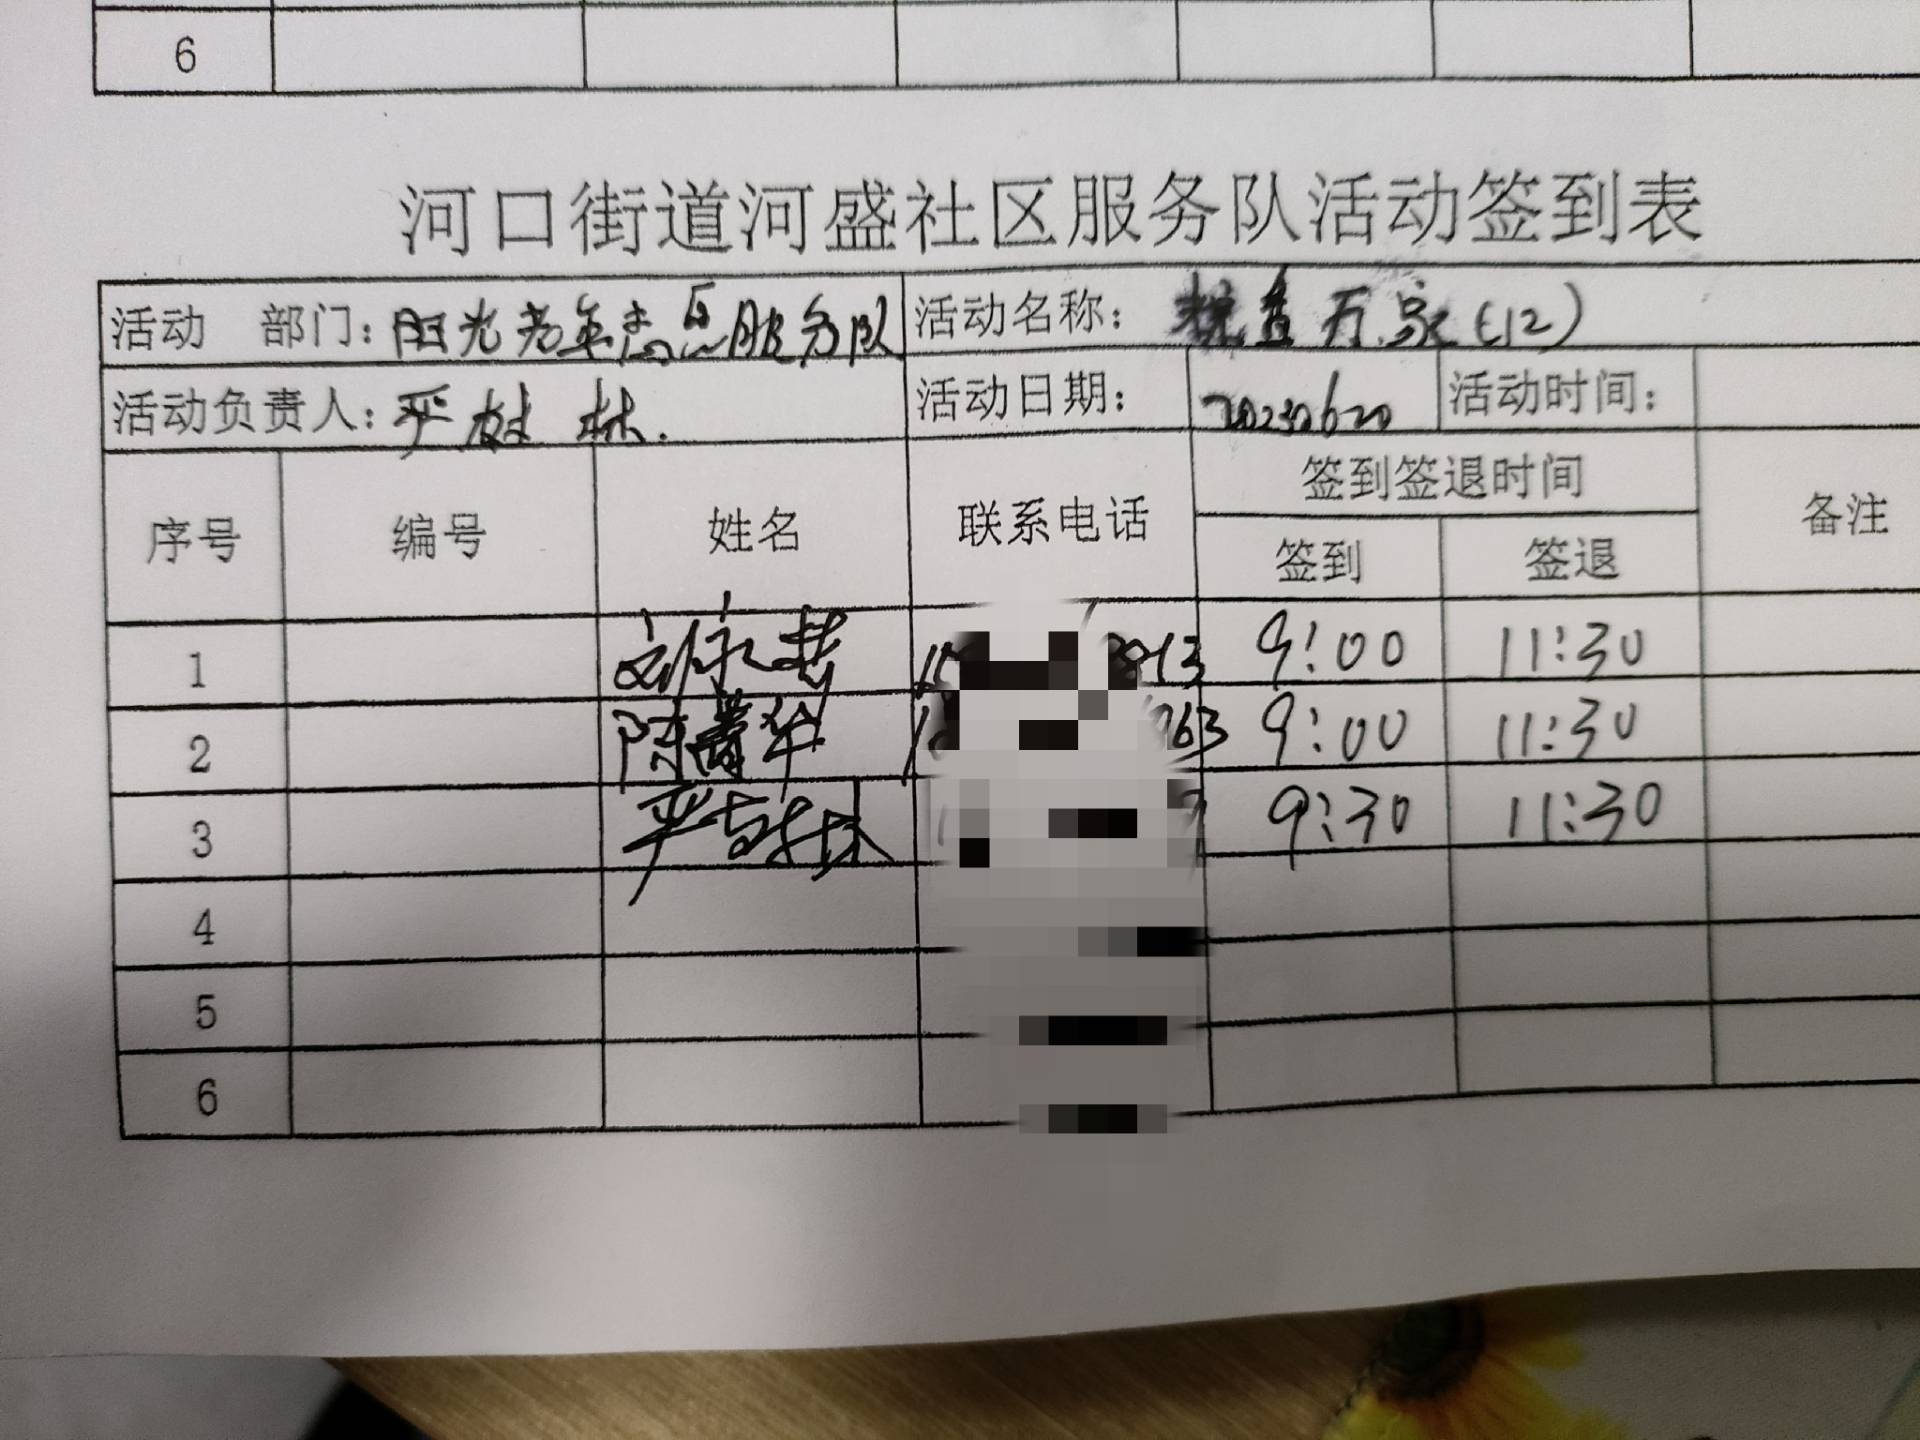 6
河口街道河盛社区服务队活动签到表
活动 部门：阳光老年志愿服务队 活动名称： 万家(12)
活动负责人：严树林. 活动日期：20230620 活动时间：
序号 编号 姓名 联系电话 签到签退时间 备注
签到 签退
1 刘永慧 9:00 11:30
2 陈菁华 63 9:00 11:30
3 严树林 9:30 11:30
4
5
6